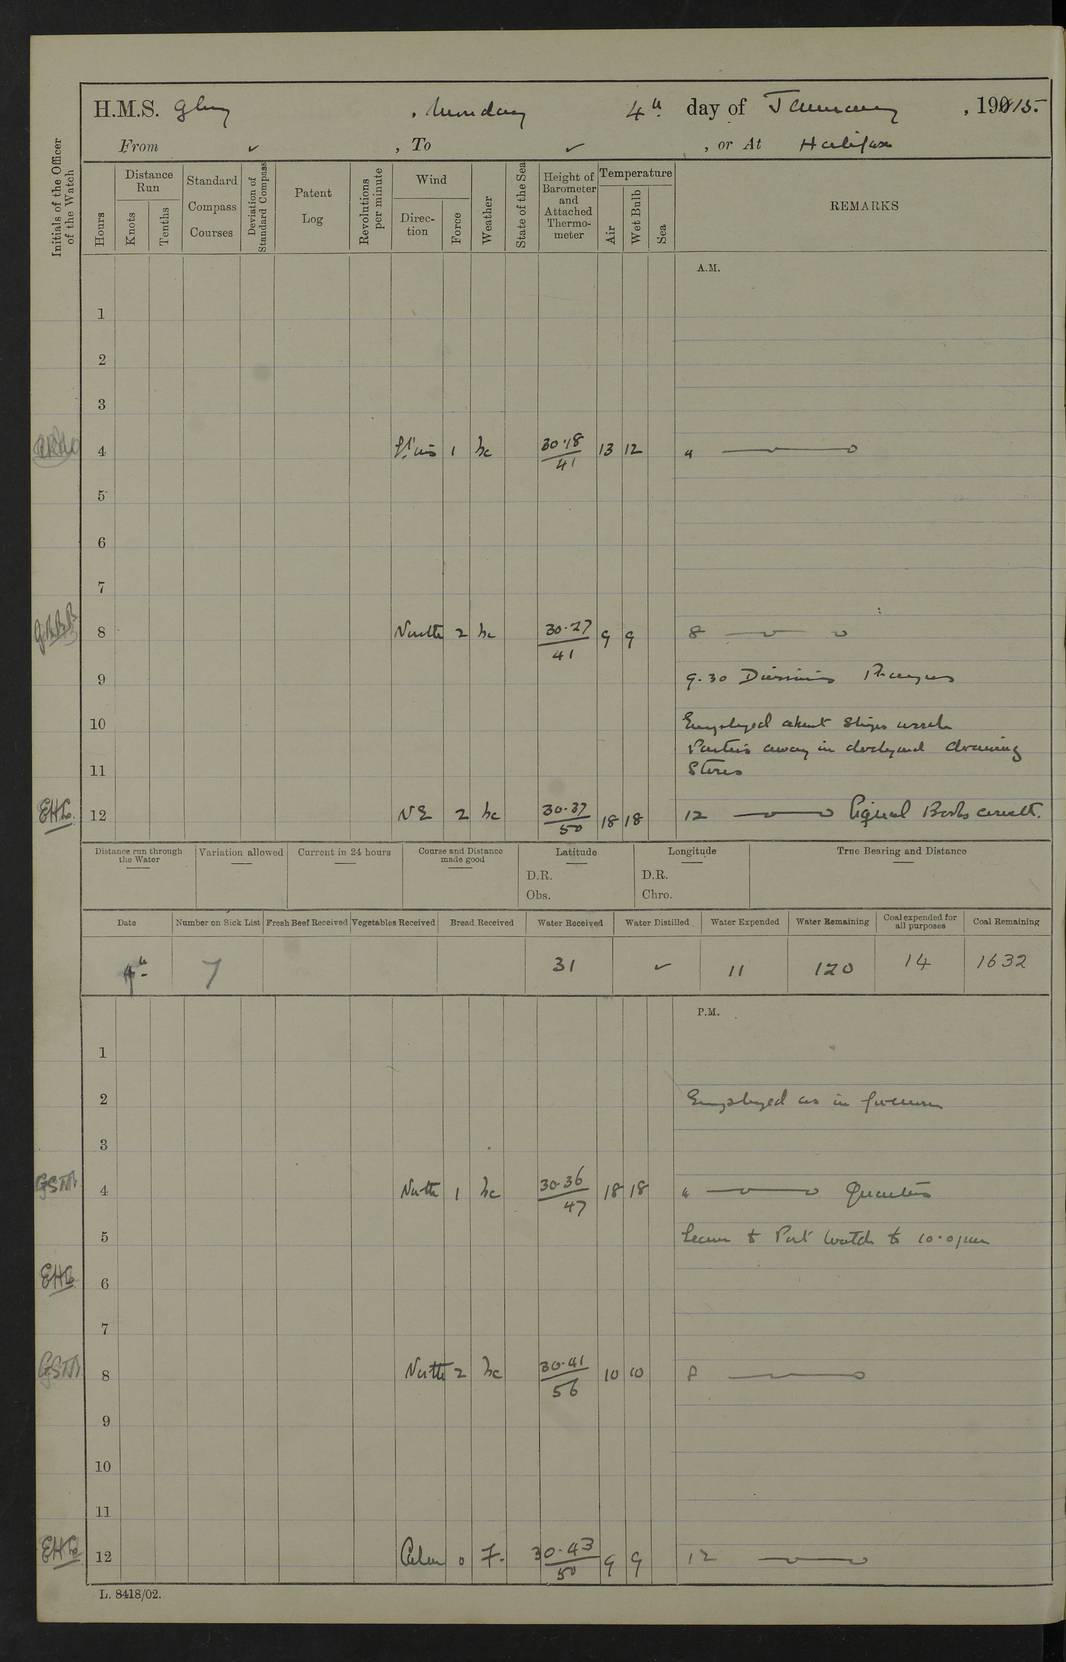 H.M.S. Glory , Monday 4th day of January , 19015.
From ✓ , To ✓ , or At Halifax
Initials of the Officer of the Watch
Hours
Distance Run
Knots
Tenths
Standard Compass Courses
Deviation of Standard Compass
Patent Log
Revolutions per minute
Wind
Direction
Force
Weather
State of the Sea
Height of Barometer and Attached Thermometer
Temperature
Air
Wet Bulb
Sea
REMARKS
A.M.
1
2
3
4 Lt airs 1 bc 30·18/41 13 12 "
5
6
7
8 North 2 bc 30·27/41 9 9 8
9 9.30 Divisions Prayers
10 Employed about Ships work
Parties away in dockyard drawing
11 Stores
EHL. 12 NE 2 bc 30·37/50 18 18 12 Signal Books correct.
Distance run through the Water
Variation allowed
Current in 24 hours
Course and Distance made good
Latitude
D.R.
Obs.
Longitude
D.R.
Chro.
True Bearing and Distance
Date Number on Sick List Fresh Beef Received Vegetables Received Bread Received Water Received Water Distilled Water Expended Water Remaining Coal expended for all purposes Coal Remaining
4th 7 31 ✓ 11 120 14 1632
P.M.
1
2 Employed as in forenoon
3
4 North 1 bc 30·36/47 18 18 " Quarters
5 Leave to Port Watch to 10·0 pm
EHL 6
7
8 North 2 bc 30·41/56 10 10 8
9
10
11
EHL 12 Calm 0 F. 30·43/50 9 9 12
L. 8418/02.